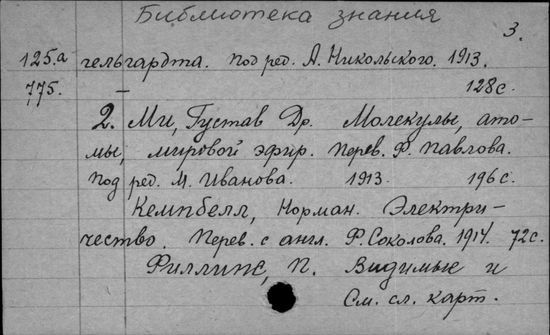 Библиотека знания
3.
125.а гельгардта. Под ред. А. Никольского. 1913.
775. — 128 с.
2. Ми, Густав Др. Молекулы, ато-
мы, мировой эфир. Перев. Ф. Павлова.
Под ред. М. Иванова. 1913. 196 с.
Кемпбелл, Норман. Электри-
чество. Перев. с англ. Ф. Соколова. 1914. 72 с.
Филлипс, П. Видимые и
См. сл. карт.